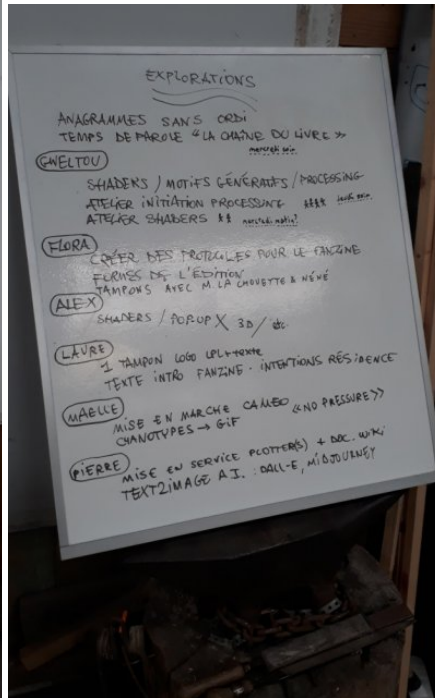 EXPLORATIONS
ANAGRAMMES SANS ORDI
TEMPS DE PAROLE "LA CHAÎNE DU LIVRE »
mercredi soir
GWELTOU
SHADERS / MOTIFS GÉNÉRATIFS / PROCESSING
ATELIER INITIATION PROCESSING **** jeudi soir
ATELIER SHADERS ** mercredi matin?
FLORA
CRÉER DES PROTOCOLES POUR LE FANZINE
FORMES DE L'ÉDITION
TAMPONS AVEC M. LA CHOUETTE & NÉNÉ
ALEX
SHADERS / POP-UP X 3D / etc
LAURE
1 TAMPON LOGO LPL + texte
TEXTE INTRO FANZINE · INTENTIONS RÉSIDENCE
MAELLE
MISE EN MARCHE CAMEO «NO PRESSURE»
CHANOTYPES → GIF
PIERRE
MISE EN SERVICE PLOTTER(S) + DOC. WIKI
TEXT2IMAGE A.I. : DALL-E, MIDJOURNEY